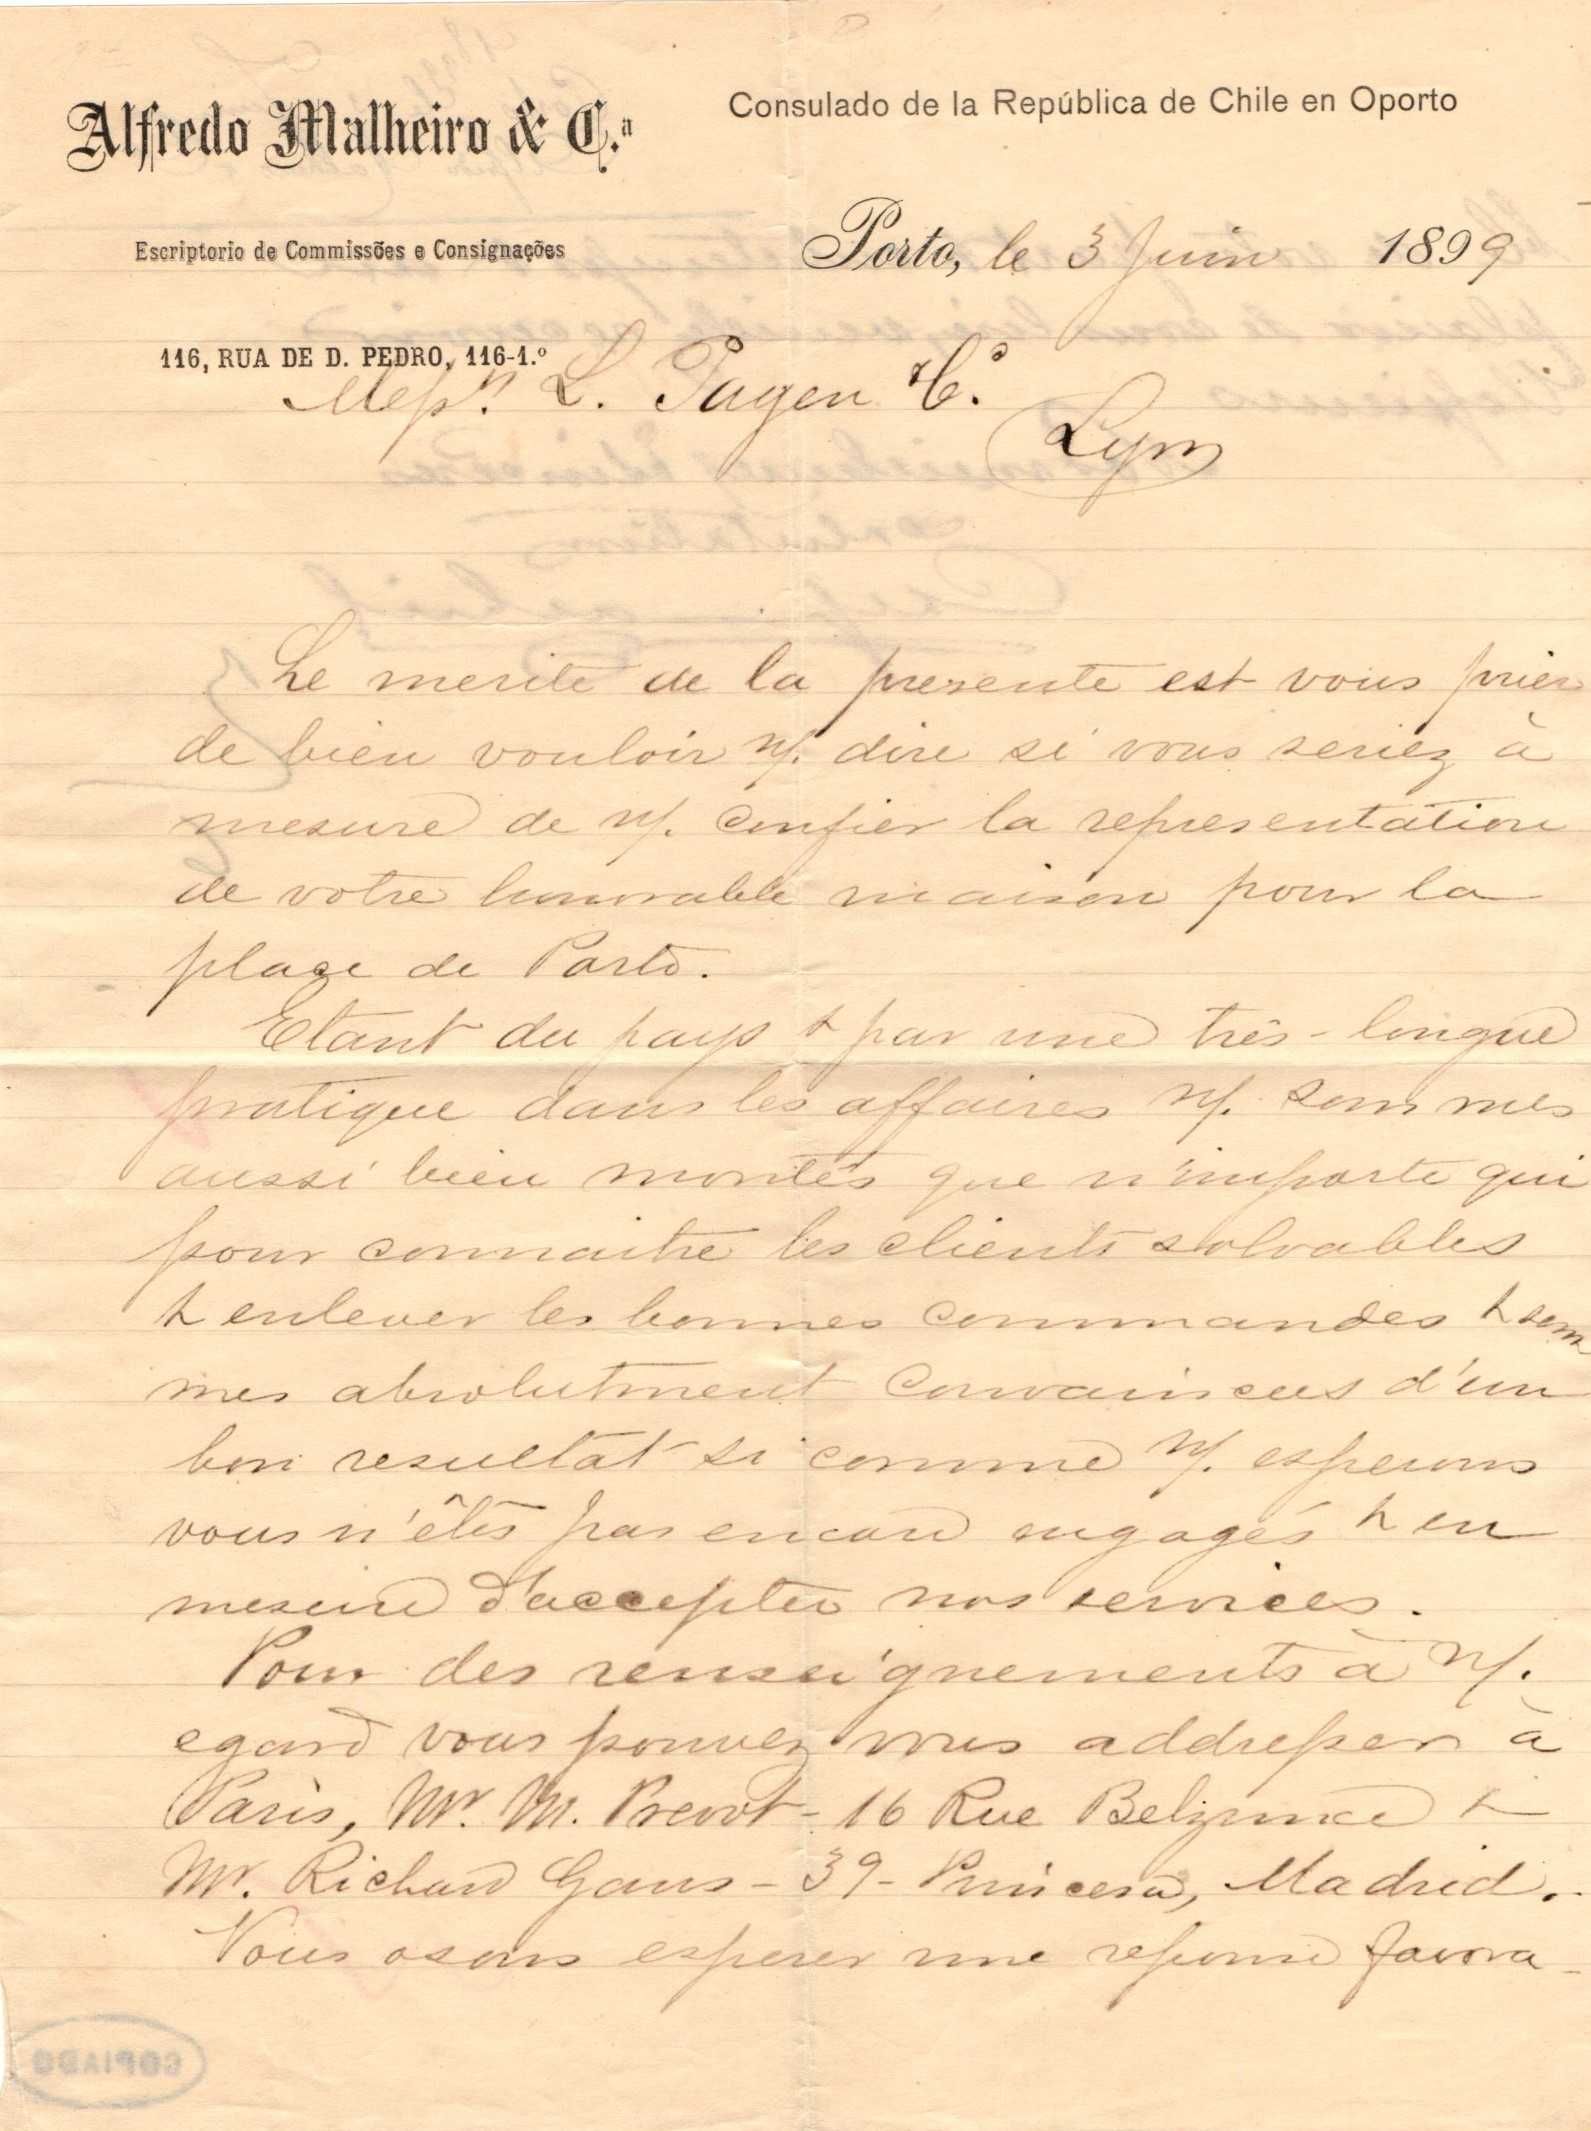 Alfredo Malheiro & C.ª
Consulado de la República de Chile en Oporto
Escriptorio de Commissões e Consignações
Porto, le 3 Juin 1899
116, RUA DE D. PEDRO, 116-1.º
Messrs. L. Pagen & Cº
Lyon
Le merite de la presente est vous prier
de bien vouloir n/. dire si vous seriez à
mesure de n/. confier la representation
de votre honorable maison pour la
place de Porto.
Etant du pays & par une très-longue
pratique dans les affaires n/. sommes
aussi bien montés que n'importe qui
pour connaitre les clients solvables
& enlever les bonnes commandes & som
mes absolutment convaincus d'un
bon resultat si comme n/. esperons
vous n'êtes pas encore engagés & en
mesure d'accepter nos services.
Pour des renseignements à n/.
egard vous pouvez vous addresser à
Paris, Mr. M. Prevot - 16 Rue Belzunce &
Mr. Richard Gans - 39 - Princesa, Madrid.
Nous osons esperer une reponse favora-
COPIADO